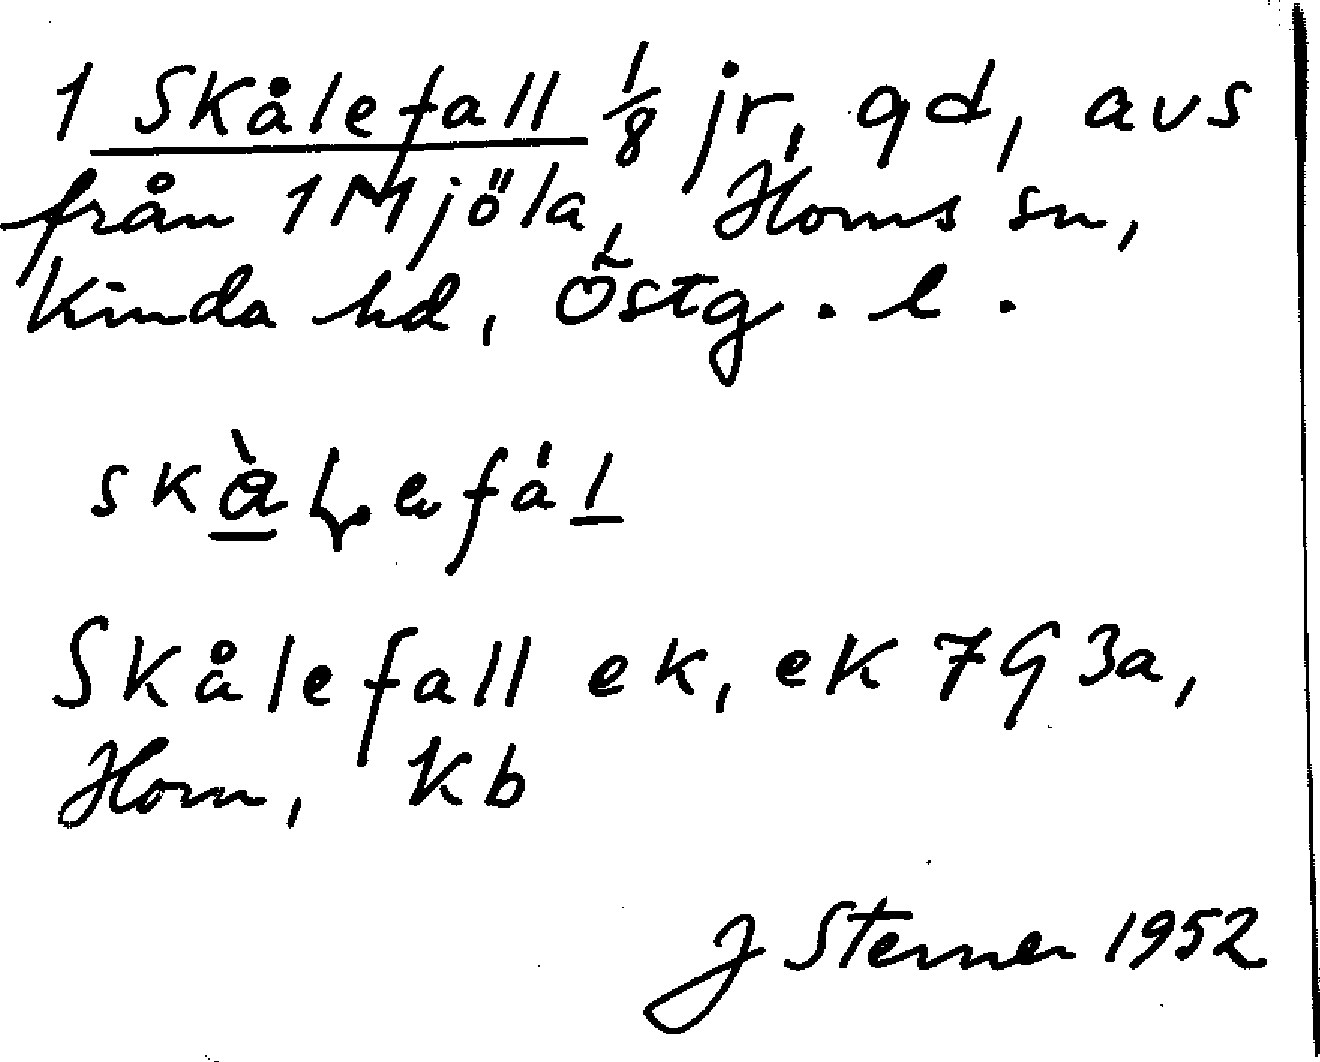 1 Skålefall 1/8 jr, gd, avs
från 1 Mjöla, Horns sn,
Kinda hd, Östg. l.
Skålefall ek, ek 7G 3a,
Horn, Kb
J Sterner 1952